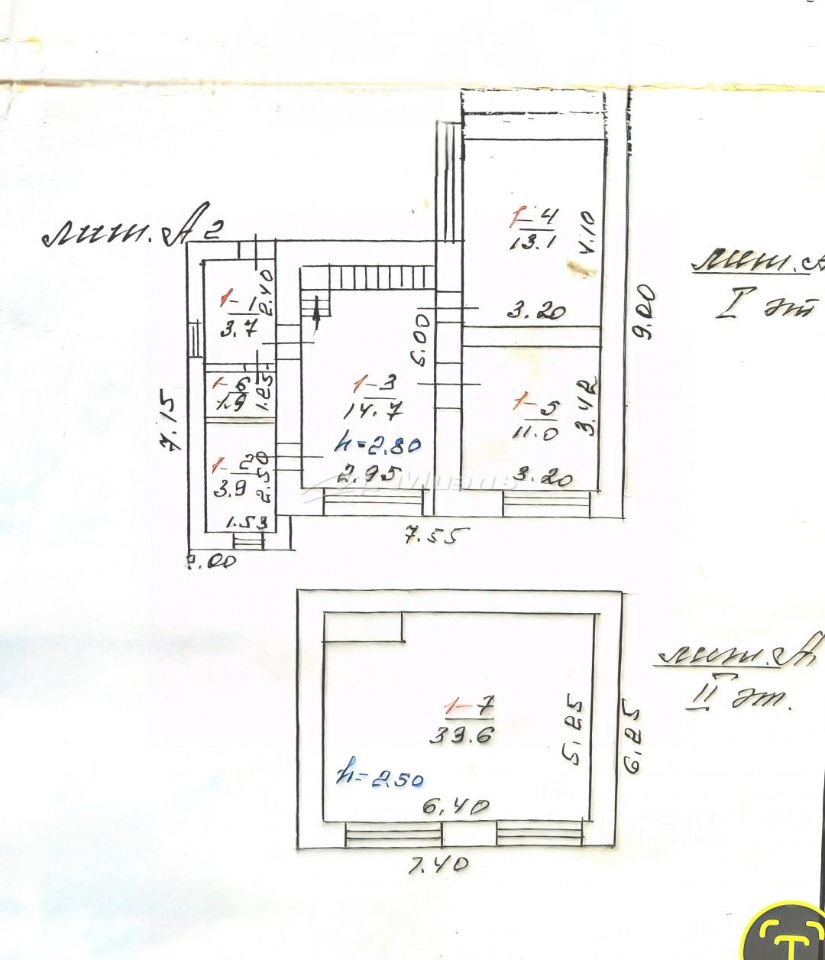 лит. А2
1-4
13.1
4.10
3.20
лит. А
I эт
9.00
1-1
3.7
2.40
6.00
1-6
1.9
1.25
1-3
14.7
h=2.80
2.95
1-5
11.0
3.42
3.20
7.15
1-2
3.9
2.50
1.53
2.00
7.55
лит. А
II эт.
1-7
39.6
5.25
6.25
h=2.50
6.40
7.40
T